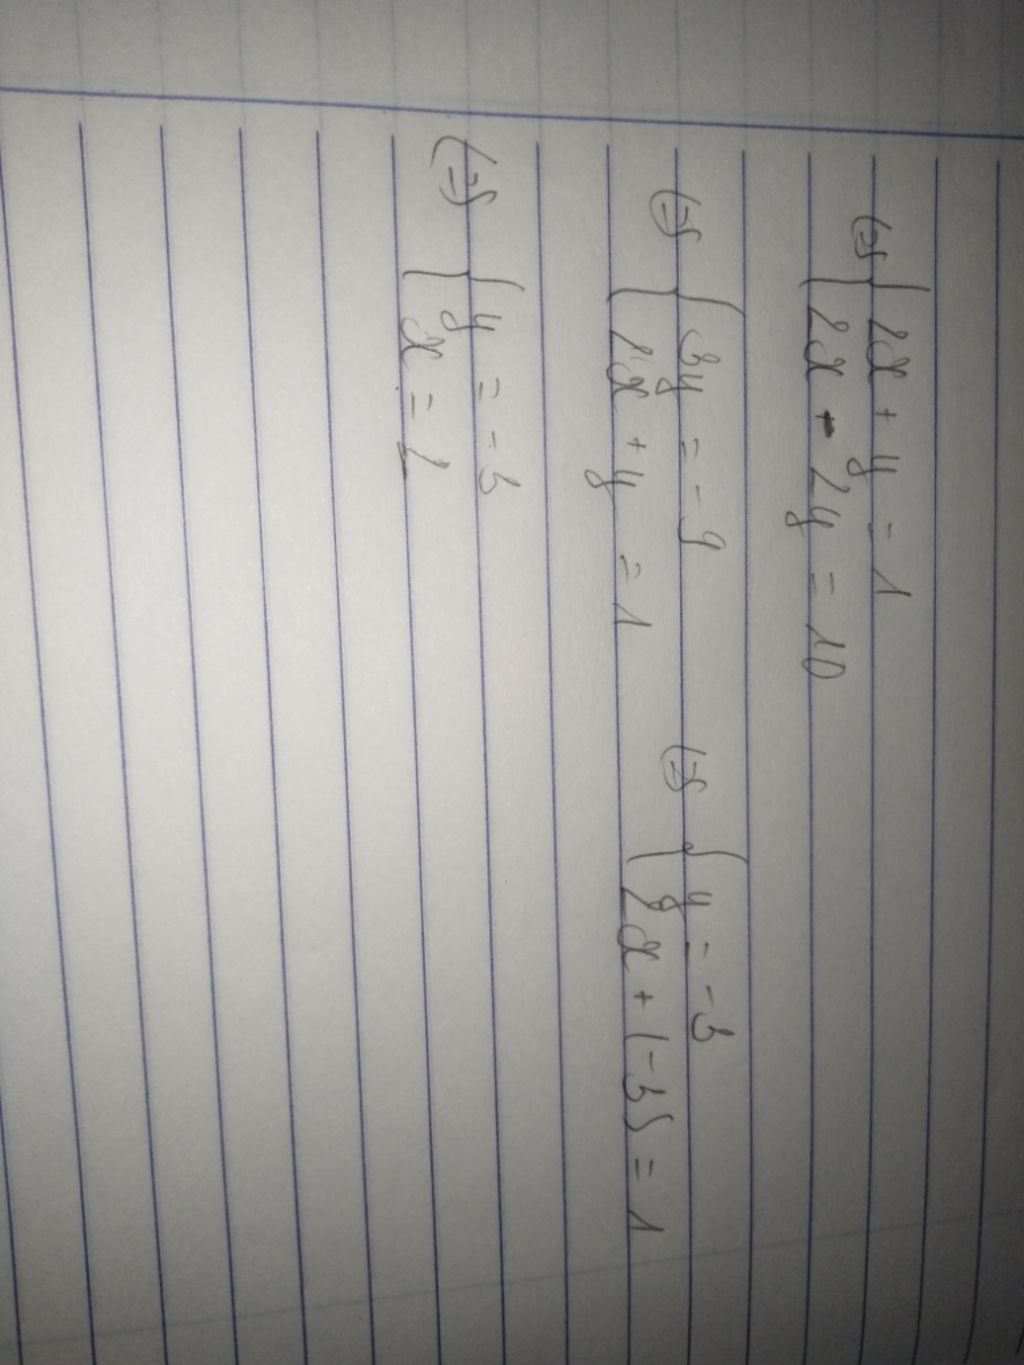 (=) { 2x + y = 1
2x - 2y = 10
(=) { 3y = -9 (=) { y = -3
2x + y = 1 2x + (-3) = 1
(=) { y = -3
x = 2